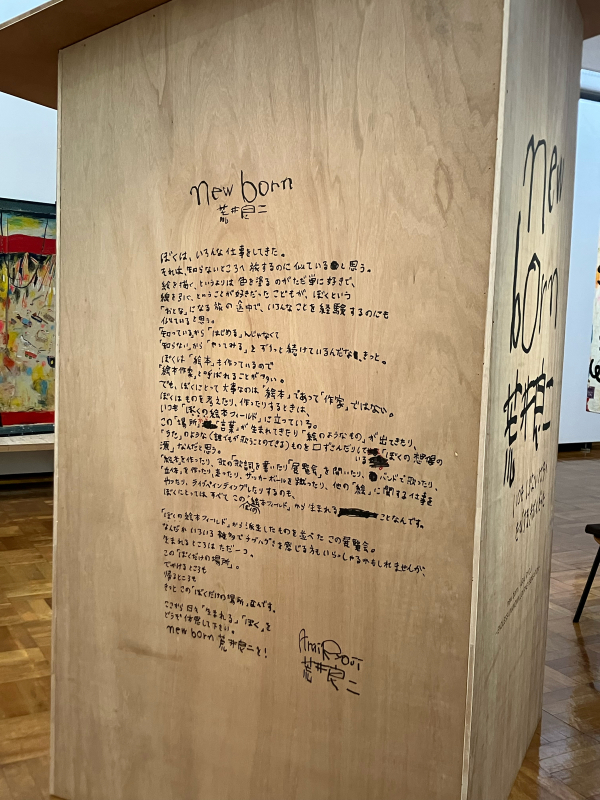 new born
荒井良二
ぼくは、いろんな仕事をしてきた。
それは、知らないところへ旅するのに似ているし思う。
絵を描く、というよりは色を塗るのがただ単に好きで、
線を引く、ということが好きだったこどもが、ぼくという
「おとな」になる旅の途中で、いろんなことを経験するのにも
似ていると思う。
「知っているから「はじめる」んじゃなくて
「知らない」から「やってみる」とずうっと続けているんだな、きっと。
ぼくは「絵本」も作っているので
「絵本作家」と呼ばれることが多い。
でも、ぼくにとって大事なのは「絵本」であって「作家」ではない。
ぼくはものを考えたり、作ったりするときは、
いつも「ぼくの絵本フィールド」に立っている。
この「場所」で「言葉」が生まれてきたり「絵のようなもの」が出てきたり、
「うた」のような(誰もが歌うことのできる)ものを口ずさんだりしている「ぼくの想像の
源」なんだと思う。
「絵本を作ったり、歌の「歌詞」を書いたり「展覧会」を開いたり、バンドで歌ったり、
「立体」を作ったり、走ったり、サッカーボールを蹴ったり、他の「絵」に関する仕事を
やったり、ライブペインティングしたりするのも、
ぼくにとっては、すべてこの「絵本フィールド」から生まれることなんです。
「ぼくの絵本フィールド」から派生したものを並べたこの展覧会。
なんだかいろいろ雑多でチグハグさを感じる方もいらっしゃるかもしれませんが、
生まれるところはただ一つ。
この「ぼくだけの場所」。
でかけるところも
帰るところも
きっとこの「ぼくだけの場所」なんです。
ここから日々「生まれる」「ぼく」を
どうぞ体感して下さい。
new born 荒井良二を!
Arai Ryoji
荒井良二
new
born
荒井良二